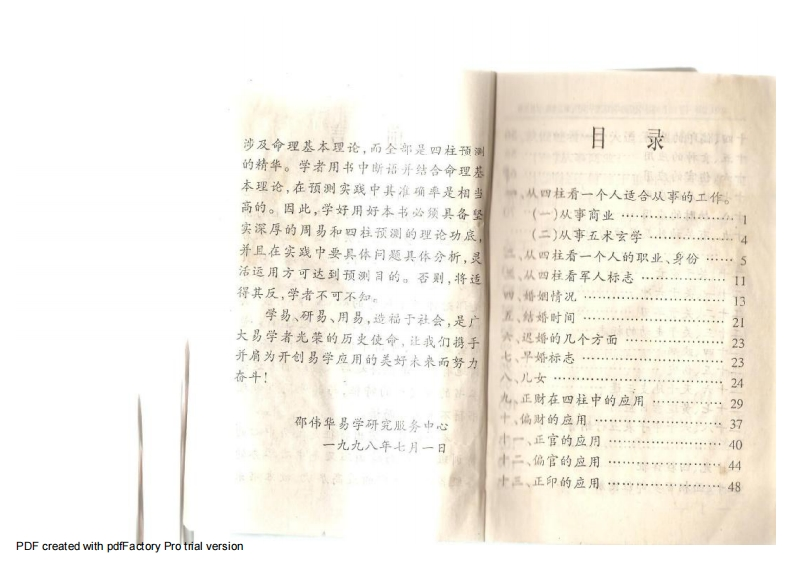 涉及命理基本理论,而全部是四柱预测
的精华。学者用书中断语并结合命理基
本理论,在预测实践中其准确率是相当
高的。因此,学好用好本书必须具备坚
实深厚的周易和四柱预测的理论功底,
并且在实践中要具体问题具体分析,灵
活运用方可达到预测目的。否则,将适
得其反,学者不可不知。
学易、研易、用易,造福于社会,是广
大易学者光荣的历史使命,让我们携手
并肩为开创易学应用的美好未来而努力
奋斗!
邵伟华易学研究服务中心
一九九八年七月一日
目 录
一、从四柱看一个人适合从事的工作。
(一)从事商业 ………………… 1
(二)从事五术玄学 ……………… 4
二、从四柱看一个人的职业、身份 …… 5
三、从四柱看军人标志 ……………… 11
四、婚姻情况 ……………………… 13
五、结婚时间 ……………………… 21
六、迟婚的几个方面 ……………… 23
七、早婚标志 ……………………… 23
八、儿女 …………………………… 24
九、正财在四柱中的应用 ………… 29
十、偏财的应用 …………………… 37
十一、正官的应用 ………………… 40
十二、偏官的应用 ………………… 44
十三、正印的应用 ………………… 48
PDF created with pdfFactory Pro trial version